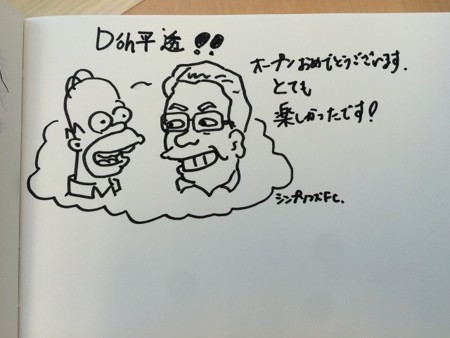 Doh平透!!
オープンおめでとうございます.
とても
楽しかったです!
シンプソンズFC.